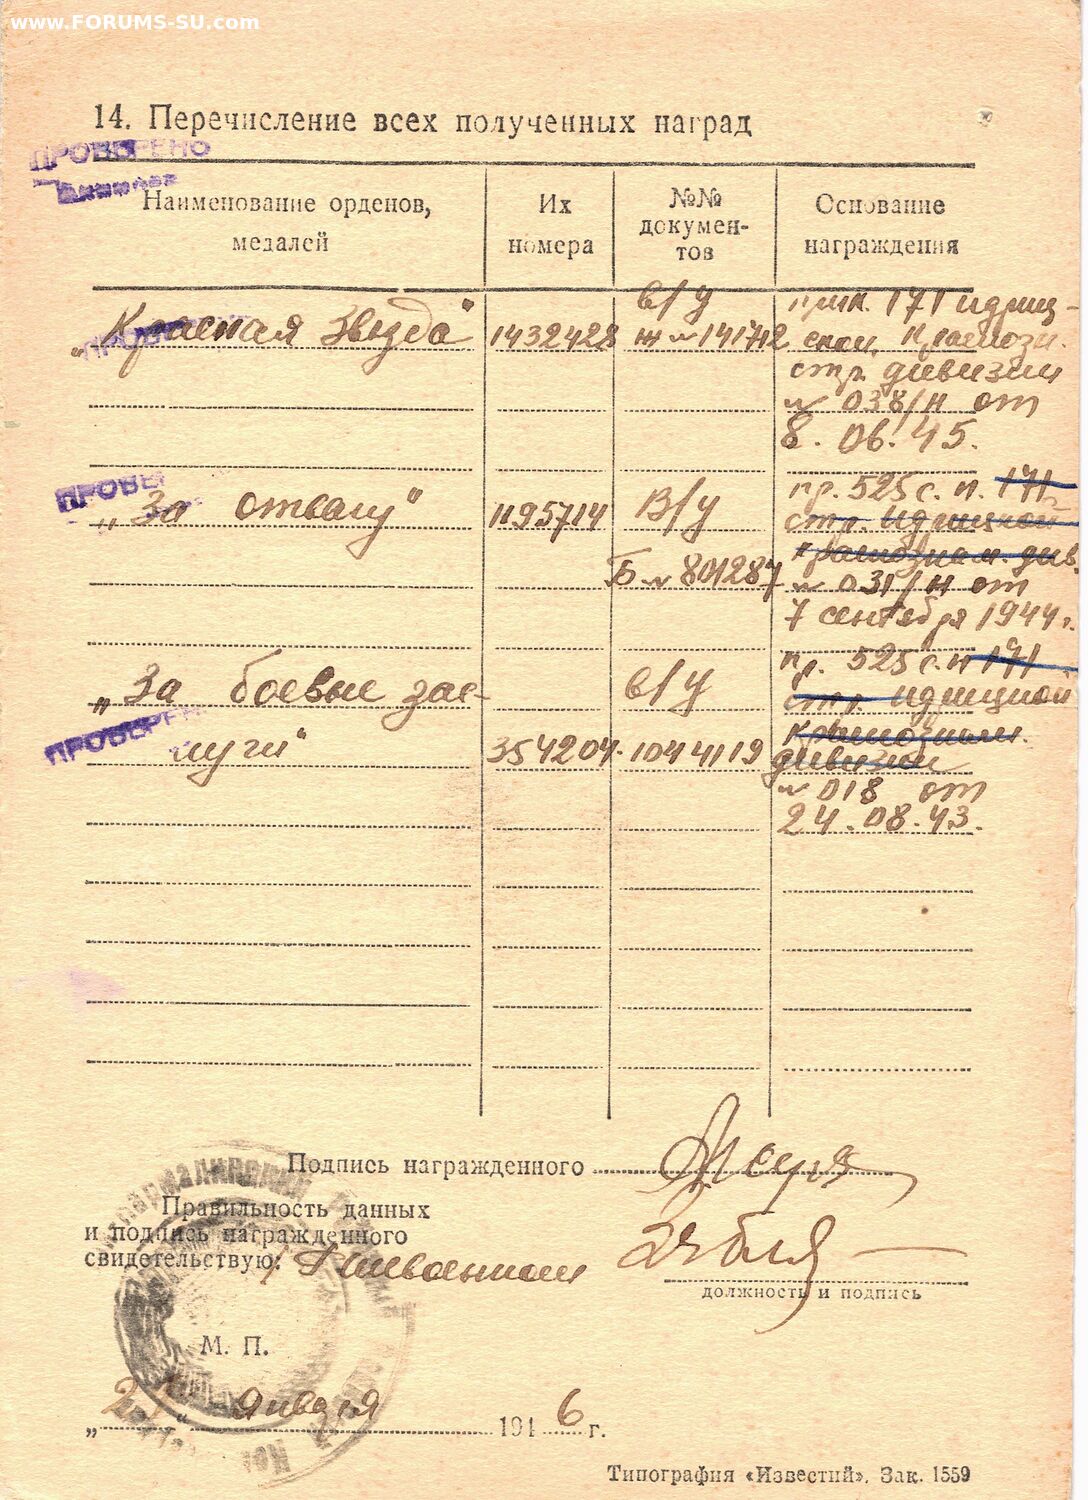 www.FORUMS-SU.com
14. Перечисление всех полученных наград
ПРОВЕРЕНО
Наименование орденов, медалей
Их номера
№№ докумен-
тов
Основание награждения
„Красная Звезда"
1432428
в/у
ж № 141712
прик. 171 идриц-
ской, Краснозн.
стр. дивизии
№ 038/н от
8. 06. 45.
ПРОВЕ
„За отвагу"
1195714
В/у
Б № 801287
пр. 525 с. п. 171
стр. Идрицкой
краснознам. див.
№ 031/н от
7 сентября 1944 г.
„За боевые зас-
луги"
ПРОВЕРЕН
354204
в/у
1044119
пр. 525 с. п 171
стр. идрицкой
Краснознам.
дивизии
№ 018 от
24. 08. 43.
Подпись награжденного
Правильность данных
и подпись награжденного
свидетельствую:
должность и подпись
М. П.
„ " января 1946 г.
Типография «Известий». Зак. 1559